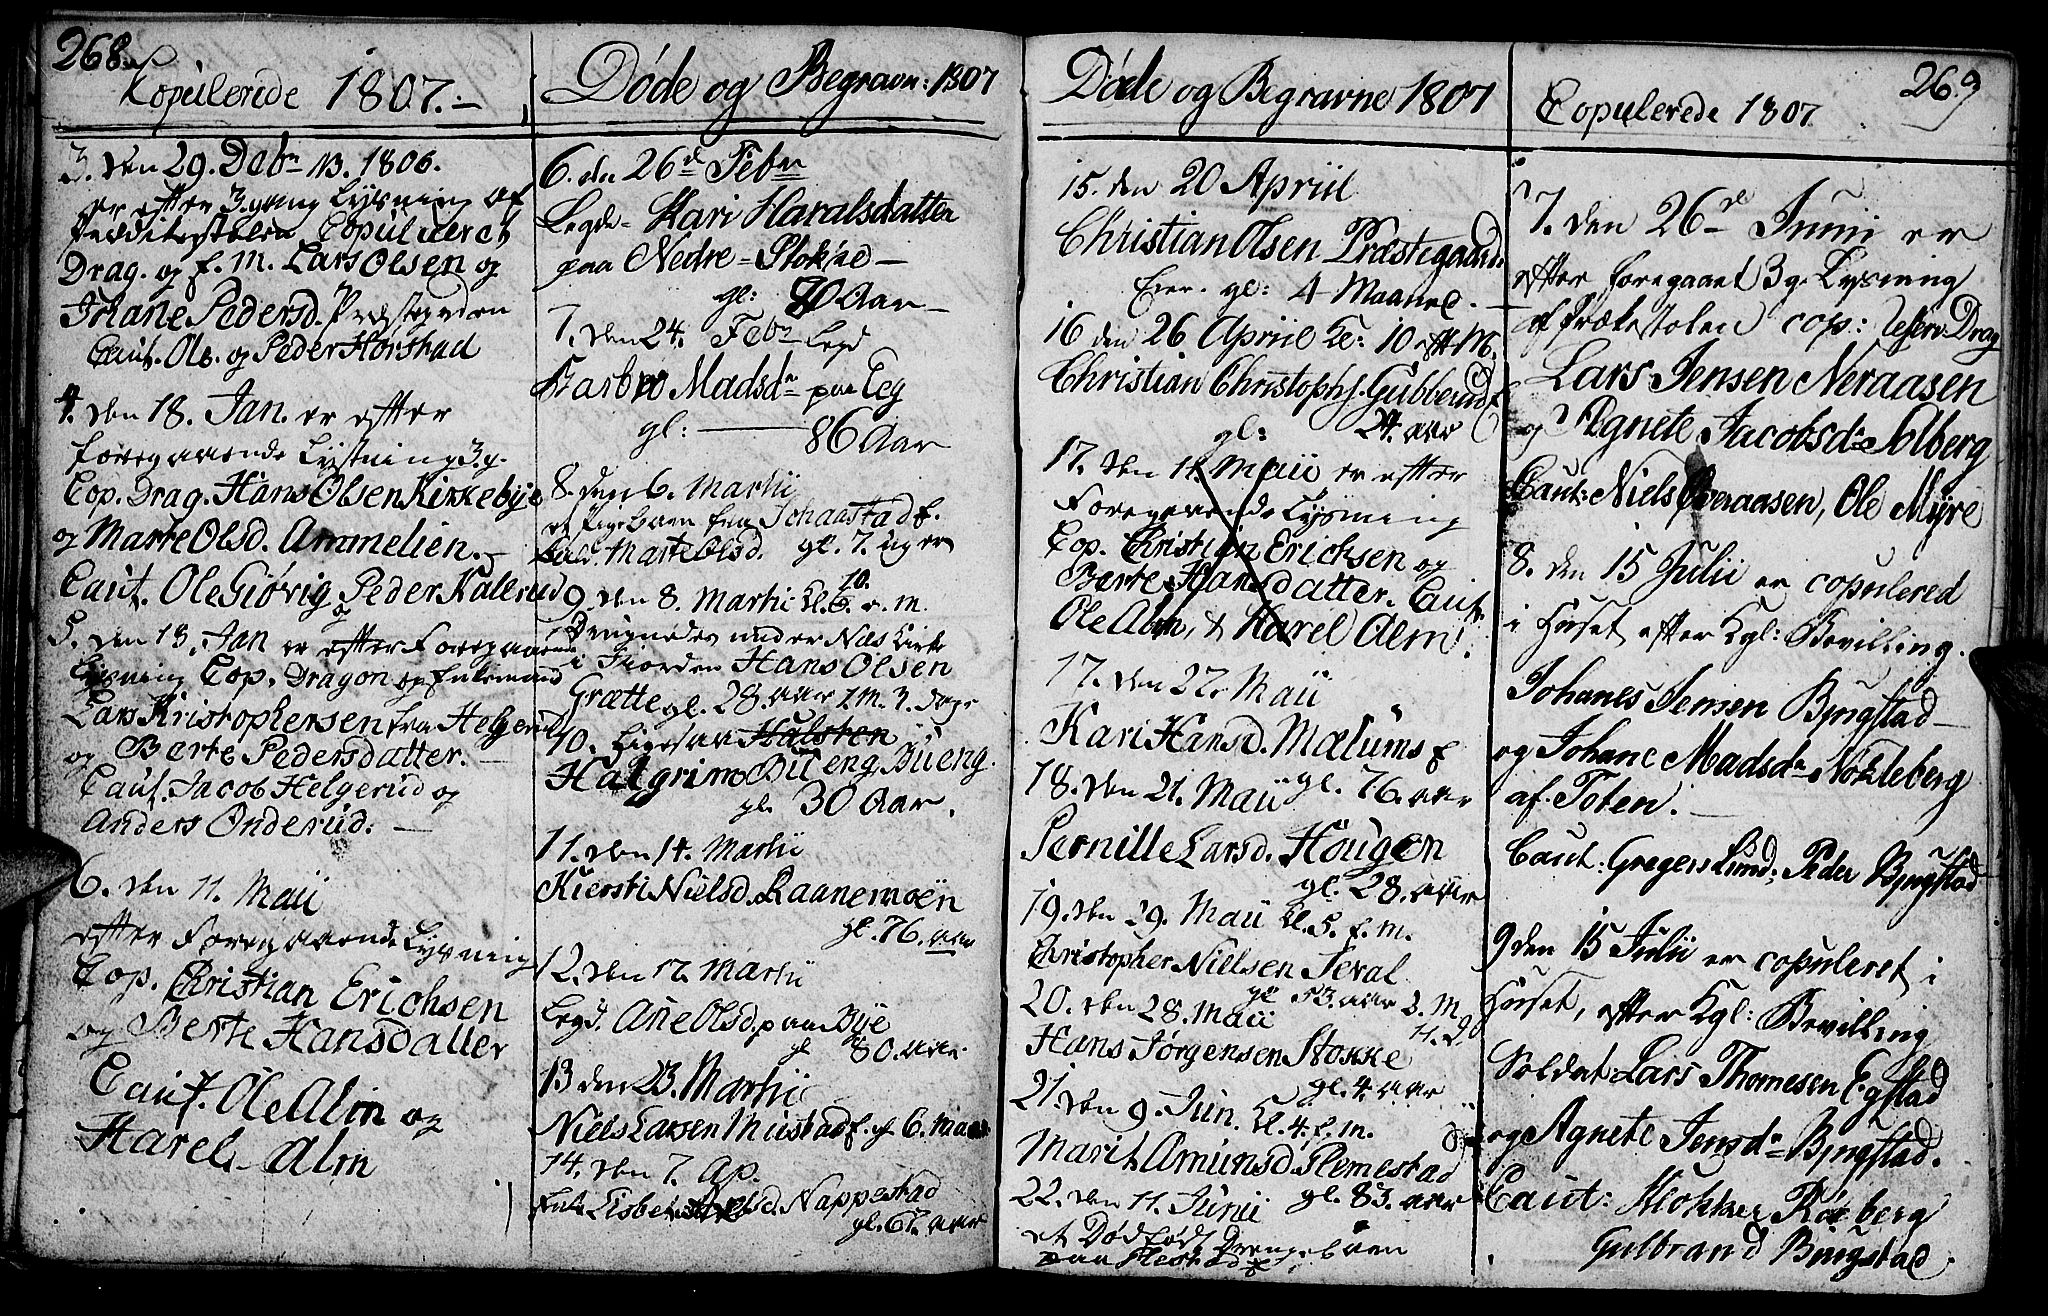 268.
Kopulerede 1807.
3. den 29. Debr. 1806.
er efter 3 gang Lysning af
Copuleret
Drag. og E. M. Lars Olsen og
Johane Pedersd. Præstegrden
Caut. Ole og Peder Horstad
4. den 18. Jan. er efter
foregaaende Lysning 3 g.
Cop. Drag. Hans Olsen Kirkebye
og Marte Olsd. Ammelien.
Caut. Ole Giøvig og Peder Kallerud
5. den 18. Jan er efter Foregaaende
Lysning Cop. Dragon og Enkemand
Lars Kristophersen fra Helgerud
og Berte Pedersdatter.
Caut. Jacob Helgerud og
Anders Onderud.
6. den 11. Maii
efter Foregaaende Lysning
Cop. Christian Erichsen
og Berte Hansdatter
Caut. Ole Alm og
Harel Alm
Døde og Begravn: 1807
6. den 26d Febr
Legds- Kari Haralsdatter
paa Nedre-Stokke
gl: 70 Aar
7. den 24. Febr Legd
Barbro Madsdr paa Eeg
gl: 86 Aar
8. den 6. Martii
et Pigebarn fra Schaastad f.
Marte Olsd. gl. 7. uger
9. den 8. Martii kl. 10. f. m.
Druknedes under Næs Kirke
i Fiorden Hans Olsen
Grætte gl. 28. aar 1 M. 3. dage
10. Ligesaa Halsten
Halgrim Büeng Büeng.
gl. 30 Aar.
11. den 14. Martii
Kiersti Nielsd. Raanemoën
gl. 76. aar
12. den 17. Martii
Legd. Ane Olsd. paa Bye
gl 80. aar
13 den 23. Martii
Niels Larsen Mustad f. gl 6. Maan
14. den 7. Ap.
Enke Lisbet Nappestad
gl. 67. aar
Døde og Begravne 1807
15. den 20 Apriil
Christian Olsen Præstegaards
Eier. gl: 4 Maaned
16 den 26 Apriil kl: 10 eft. M.
Christian Christophs. Gubberud f
gl: 24. aar
17. den 11. Maii er efter
Foregaaende Lysning
Cop. Christian Erichsen og
Berte Hansdatter. Caut.
Ole Alm, & Harel Alm.
17. den 22. Maii
Kari Hansd. Mælums f
gl. 76. aar
18. den 21. Maii
Pernille Larsd. Hougen
gl. 28. aar
19. den 29. Maii kl. 5. f. m.
Christopher Nielsen Seval
gl 53. aar 2. M
20. den 28. Maii 4. D.
Hans Jørgensen Stokke
gl. 4. aar
21. den 9. Jun. kl. 4. f. m.
Marit Amunsd Slemestad
gl. 83. aar
22. den 11. Junii
et Dødfødt Drengebarn
paa
269
Copulerede 1807
7. den 26de Junii er
efter foregaaet 3 g. Lysning
af Prækestolen cop: Reserv Drag
Lars Jensen Neraasen
og Agnete Jacobsdr Solberg
Caut: Niels Overaasen, Ole Myre
8. den 15 Julii er copulered
i Huset efter Kgl: Bevilling.
Johanes Jensen Byngstad
og Johane Madsdr Nøkleberg
af Toten.
Caut: Gregers Lund, Peder Byngstad
9 den 15 Julii er copuleret i
Huset, efter Kgl: Bevilling
Soldat Lars Thomesen Egstad
og Agnete Jensdr Byngstad.
Caut: Klokker Røeberg
Gulbrand Byngstad